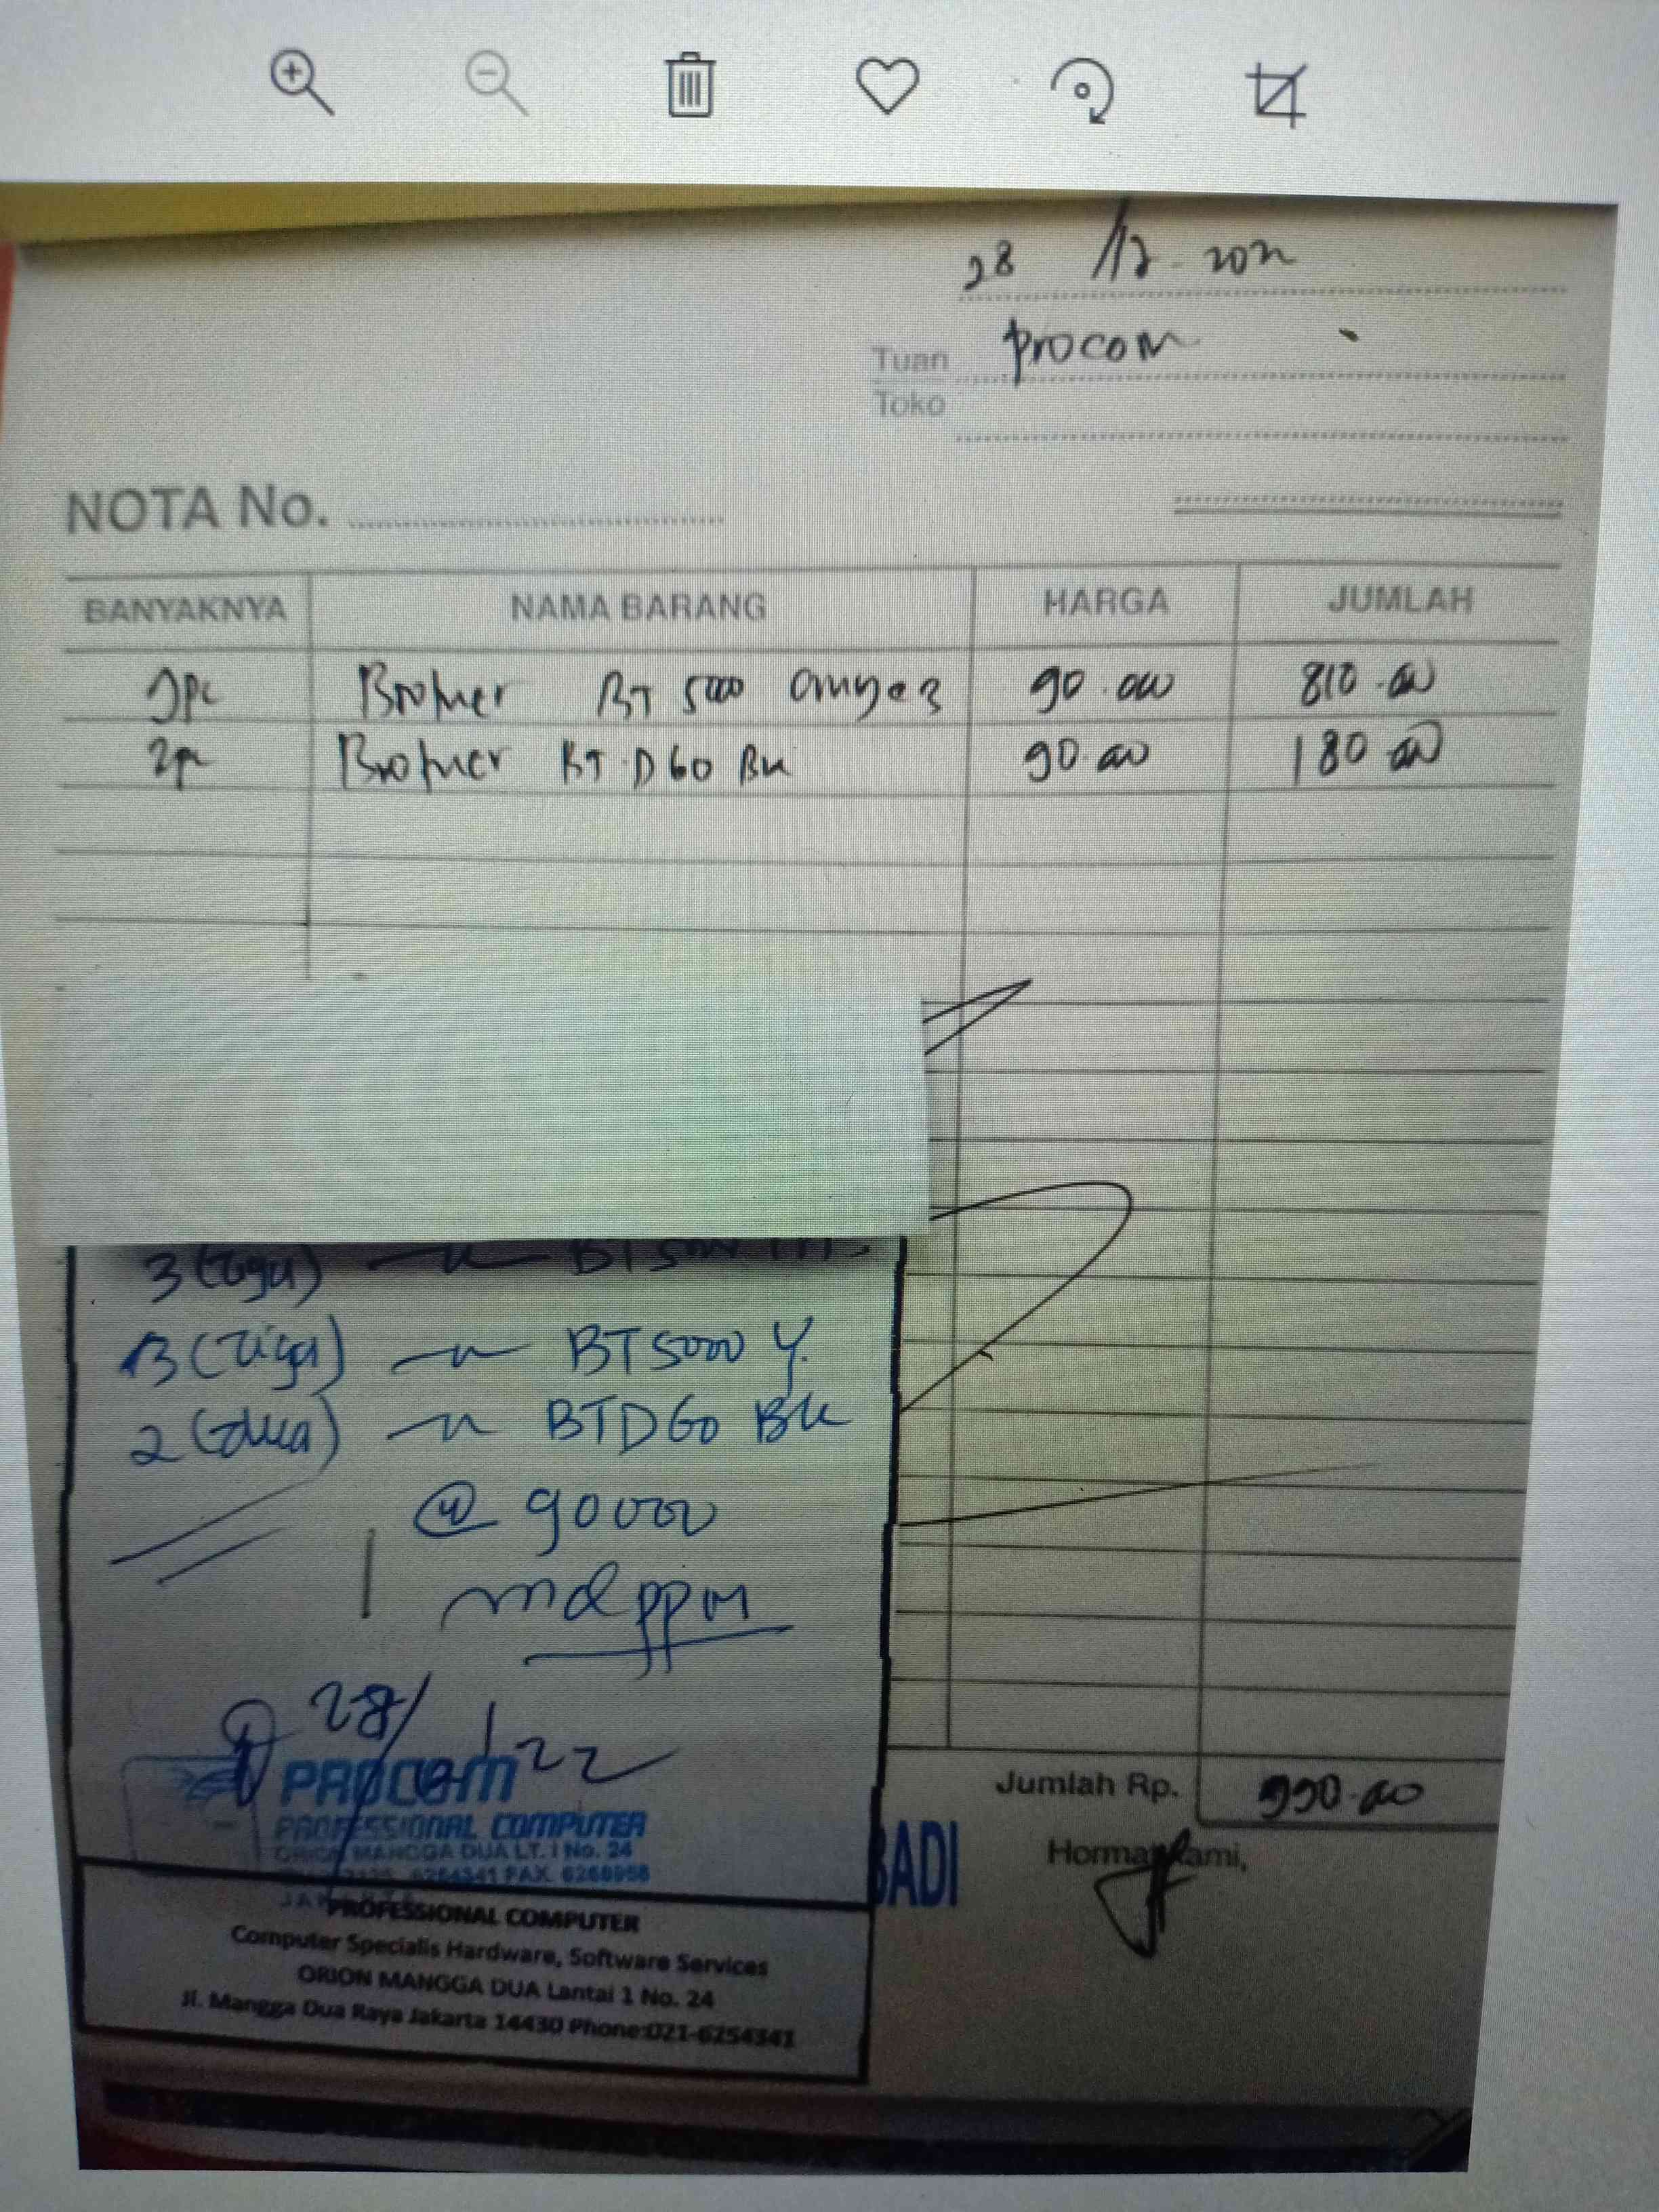 28 /12 - 2022
Tuan procom
Toko
NOTA No.
BANYAKNYA NAMA BARANG HARGA JUMLAH
9pc Brother BT 5000 cmy@3 90.000 810.000
2pc Brother BT D60 Bk 90.000 180.000
3 (tiga) BT 5000
3 (Tiga) BT 5000 Y.
2 (dua) BTD60 Bk
@ 90000
28/ 22
Procom
PROFESSIONAL COMPUTER
ORION MANGGA DUA LT. I No. 24
6254341 FAX.
Jumlah Rp. 990.000
BADI
Hormat Kami,
PROFESSIONAL COMPUTER
Computer Specialis Hardware, Software Services
ORION MANGGA DUA Lantai 1 No. 24
Jl. Mangga Dua Raya Jakarta 14430 Phone:021-6254341